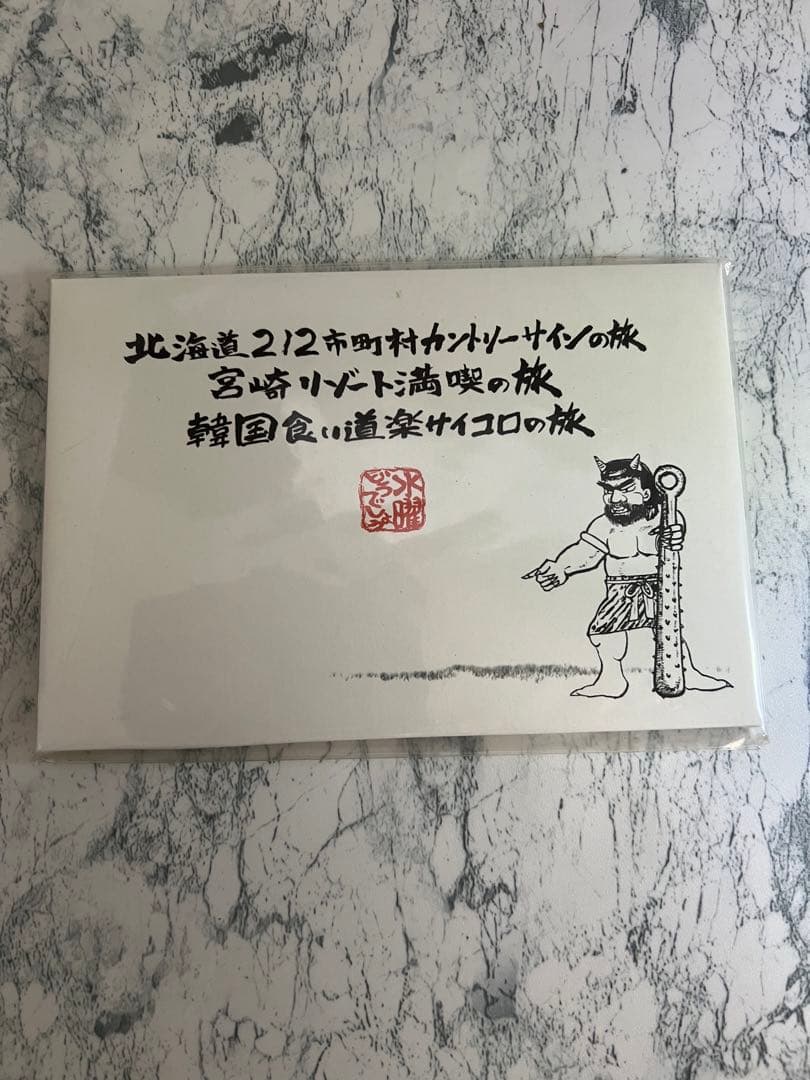 北海道212市町村カントリーサインの旅
宮崎リゾート満喫の旅
韓国食い道楽サイコロの旅
水曜
どうでしょう